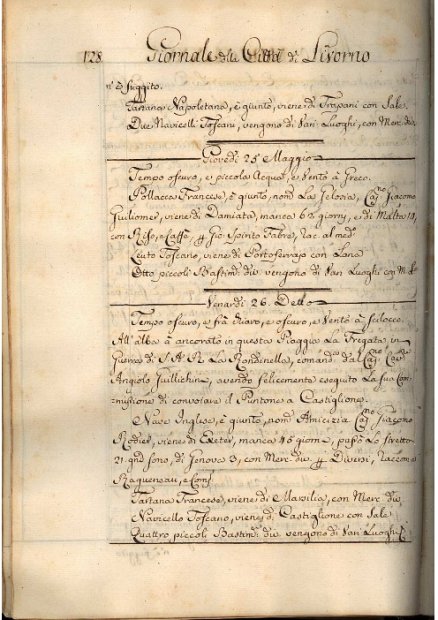 128 Giornale della Città di Livorno
n'è seguito.
Tartana Napoletana, è giunto, viene di Trapani con Sale.
Due Navicelli Toscani, vengono di Vari Luoghi, con Merc. div.
Giovedì 25 Maggio
Tempo oscuro, e piccola acqua, e Vento à Greco.
Pollacca Francese, è giunto, nom. La Gelosia, Cap.no Giacomo
Guilione, viene di Damiata, manca 63 giorni, e di Malta 18,
con Riso, e Caffè, p Gio Spirito Fabre, rac. al med.
Leuto Toscano, viene di Portoferrajo con Lana
Otto piccoli Bastim. div. vengono di Vari Luoghi con M.
Venerdì 26. Detto
Tempo oscuro, e frà chiaro, e oscuro, e Vento à scilocco.
All'alba à ancorato in questa Piaggia La Fregata in
Guerra di S A R La Rondinella, comand. dal Cap.no
Angiolo Guillichini, avendo felicemente eseguito La sua Com-
missione di convoiare il Puntone a Castiglione.
Nave Inglese, è giunto, nom. Amicizia Cap.no Giacomo
Rodier, viene di Exeter, manca 46 giorni, passò Lo stretto
21. gnd sono, di Genova 3, con Merc. div. p Diversi, raccom. a
Ragueneau, e Cons.
Tartana Francese, viene di Massilia, con Merc. div.
Navicello Toscano, viene di Castiglione con Sale
Quattro piccoli Bastim. div. vengono di Vari Luoghi